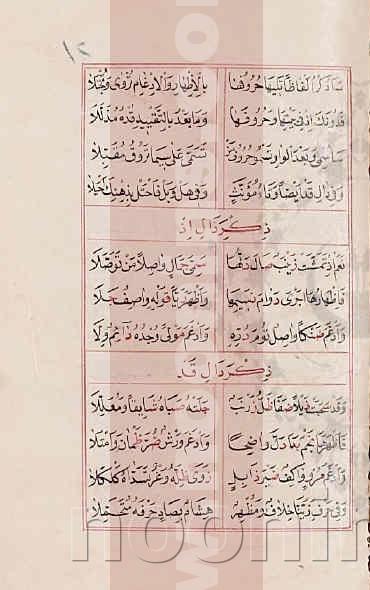 ١٢
سأذكر ألفاظا تليها حروفها بالإظهار والإدغام تروى وتجتلا
فدونك إذ في بيتها وحروفها وما بعد بالتقييد قده مذللا
سأسمي وبعد الواو تسمو حروف من تسمى على سيما تروق مقبلا
وفي دال قد أيضا وتاء مؤنث وفي هل وبل فاحتل بذهنك أحيلا
ذكر دال إذ
نعم إذ تمشت زينب صال دلها سمي جمال واصلا من توصلا
فإظهارها أجرى دوام نسيمها وأظهر ريا قوله واصف جلا
وأدغم ضنكا واصل توم دره وأدغم مولى وجده دائم ولا
ذكر دال قد
وقد سحبت ذيلا ضفا ظل زرنب جلته صباه شائقا ومعللا
فأظهرها نجم بدا دل واضحا وأدغم ورش ضر ظمآن وامتلا
وأدغم مرو واكف ضير ذابل زوى ظله وغر تسداه كلكلا
وفي حرف زينا خلاف ومظهر هشام بصاد حرفه متحملا